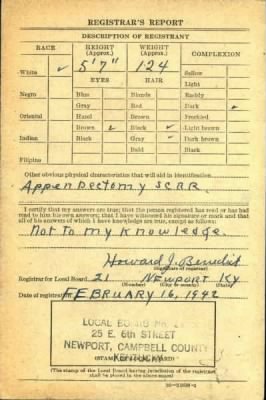 REGISTRAR'S REPORT
DESCRIPTION OF REGISTRANT
RACE HEIGHT (Approx.) WEIGHT (Approx.) COMPLEXION
White ✓ 5'7" 124 Sallow
EYES HAIR Light
Negro Blue Blonde Ruddy
Gray Red Dark ✓
Oriental Hazel Brown Freckled
Brown ✓ Black ✓ Light brown
Indian Black Gray Dark brown
Bald Black
Filipino
Other obvious physical characteristics that will aid in identification
Appendectomy SCAR
I certify that my answers are true; that the person registered has read or has had
read to him his own answers; that I have witnessed his signature or mark and that
all of his answers of which I have knowledge are true, except as follows:
Not to my Knowledge.
Howard J. Benedict
(Signature of registrar)
Registrar for Local Board 21 Newport Ky
(Number) (City or county) (State)
Date of registration FEBRUARY 16, 1942
LOCAL BOARD No.
25 E. 6th STREET
NEWPORT, CAMPBELL COUNTY
KENTUCKY
(The stamp of the Local Board having jurisdiction of the registrant
shall be placed in the above space.)